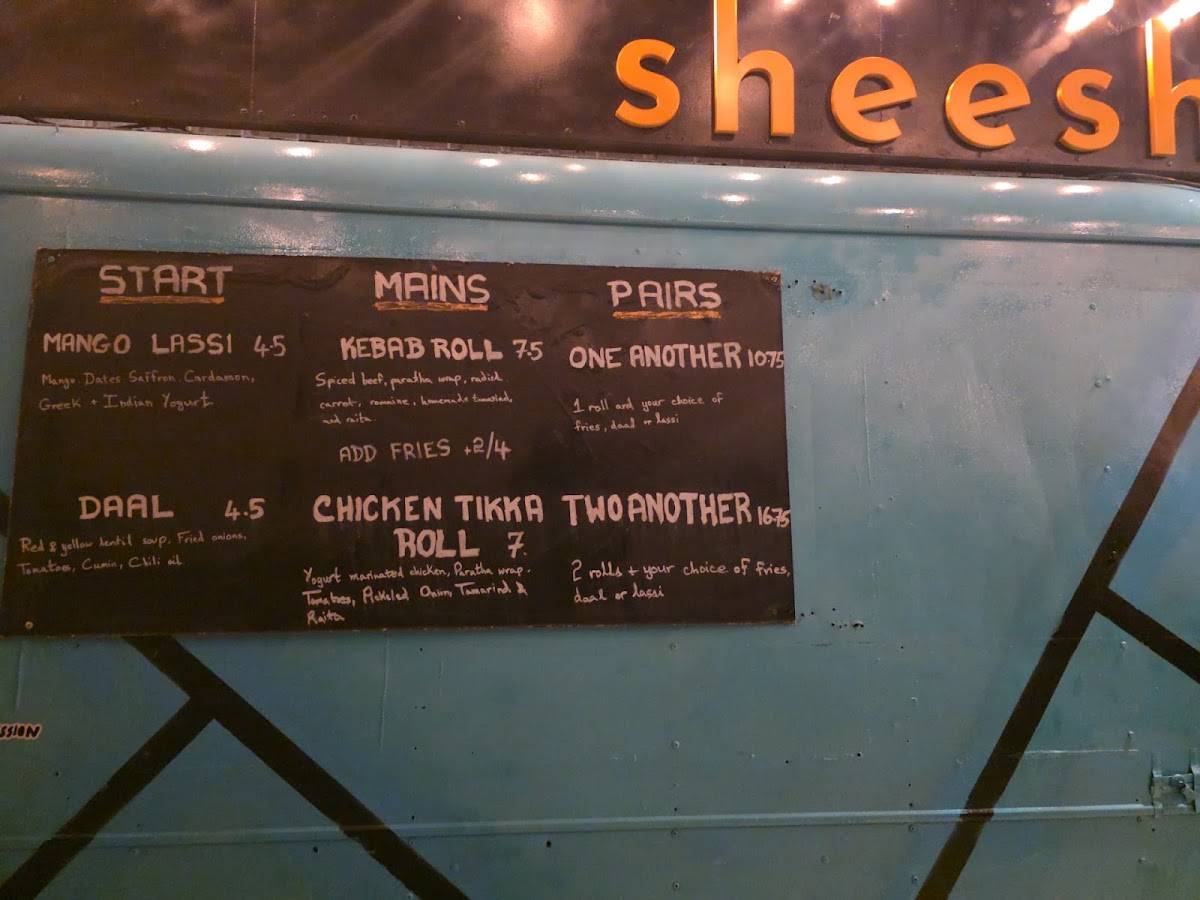 sheesh
START
MANGO LASSI 4.5
Mango. Dates Saffron. Cardamon,
Greek + Indian Yogurt
DAAL 4.5
Red & yellow lentil soup. Fried onions,
Tomatoes, Cumin, Chili oil
MAINS
KEBAB ROLL 7.5
Spiced beef, paratha wrap, radish
carrots, romaine, homemade
and raita.
ADD FRIES +2/4
CHICKEN TIKKA
ROLL 7.
Yogurt marinated chicken, Paratha wrap.
Tomatoes, Pickled Onion, Tamarind &
Raita
PAIRS
ONE ANOTHER 10.75
1 roll and your choice of
fries, daal or lassi
TWO ANOTHER 16.75
2 rolls + your choice of fries,
daal or lassi
SSION